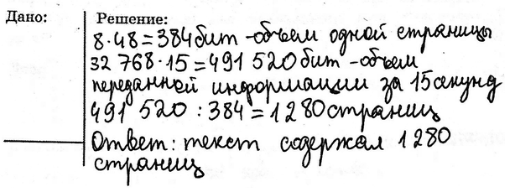 Дано:
Решение:
8·48=384бит -объем одной страницы
32 768·15=491 520бит -объем
переданной информации за 15секунд
491 520 : 384=1280страниц
Ответ: текст содержал 1280
страниц